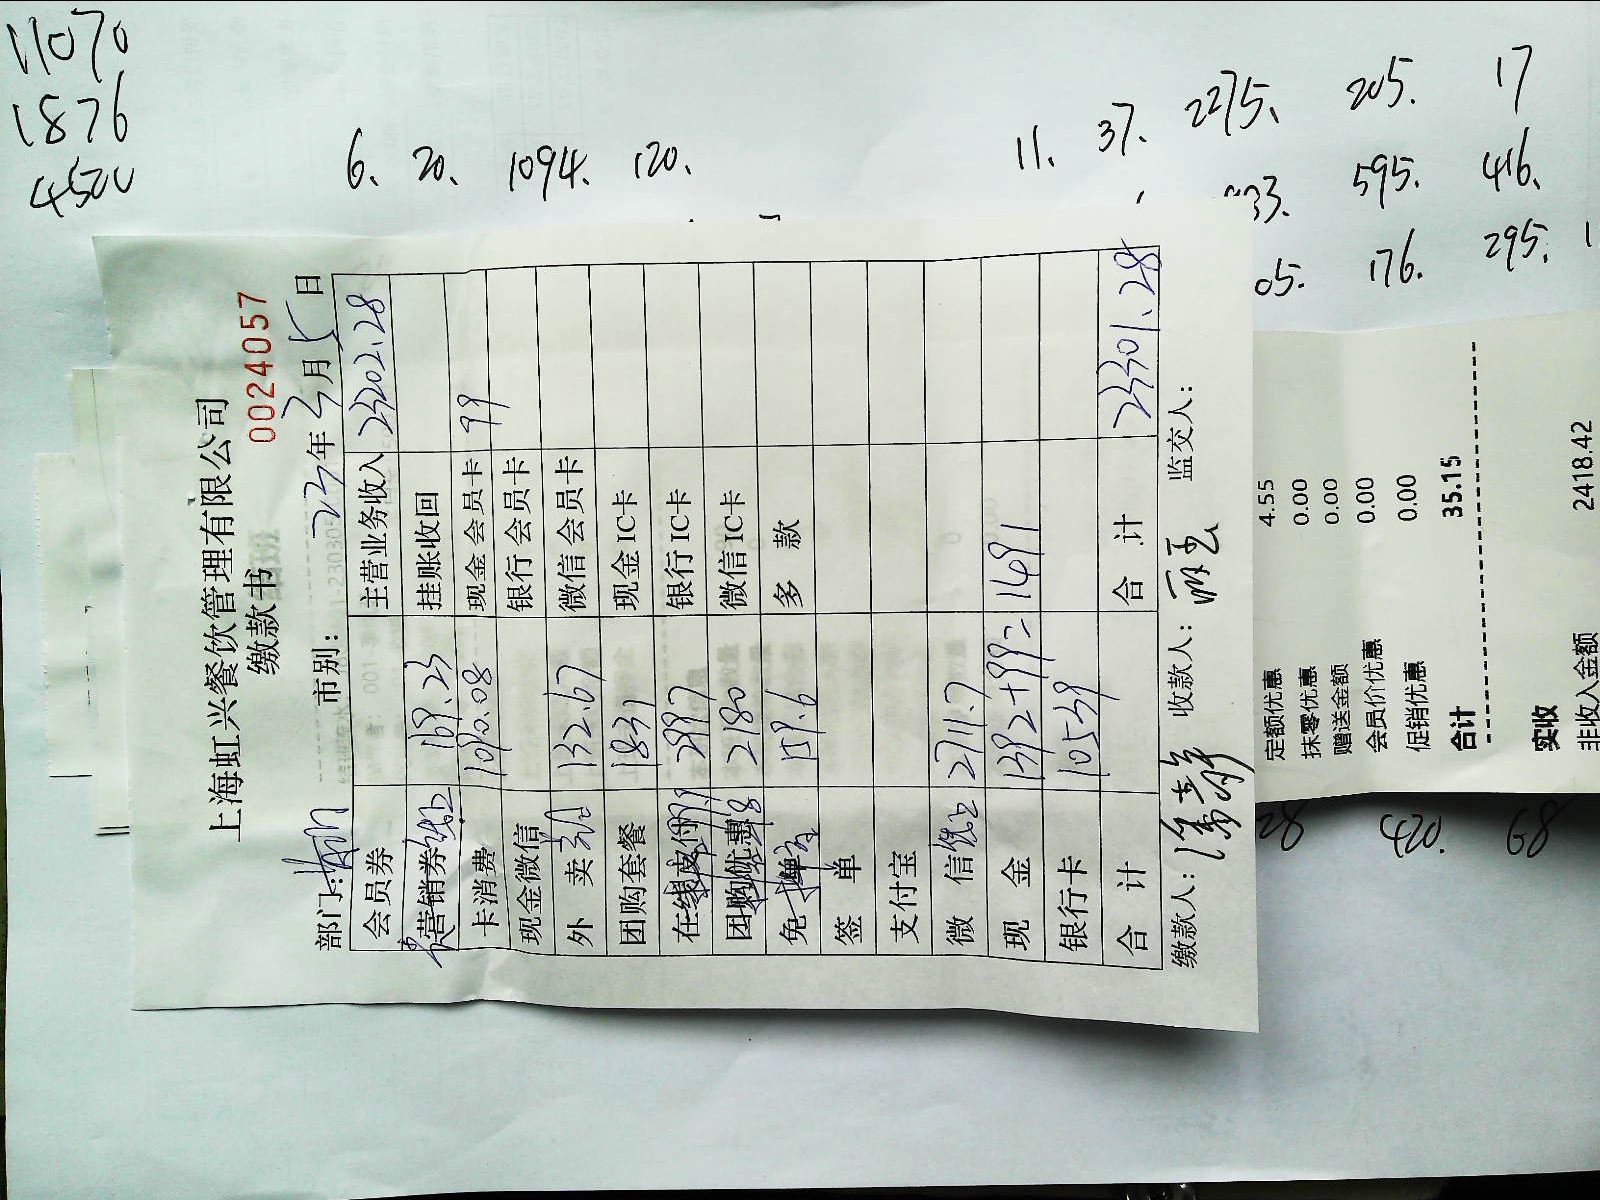 11070
1876
4500
6. 20. 1094. 120.
11. 37. 2275. 205. 17
33. 595. 416.
05. 176. 295. 1
上海虹兴餐饮管理有限公司
缴款书
0024057
部门: 市别: 23年3月5日
会员券 主营业务收入 23202.28
营销券 169.23 挂账收回
卡消费 1090.08 现金会员卡 99
现金微信 银行会员卡
外卖 132.67 微信会员卡
团购套餐 1837 现金IC卡
在线支付 2997 银行IC卡
团购优惠 2180 微信IC卡
免单 159.6 多款
签单
支付宝
微信 2711.7
现金 1392+99=1491
银行卡 10539
合计 合计 23301.28
缴款人: 收款人: 监交人:
定额优惠 4.55
抹零优惠 0.00
赠送金额 0.00
会员价优惠 0.00
促销优惠 0.00
合计 35.15
实收
非收入金额 2418.42
28 420. 68